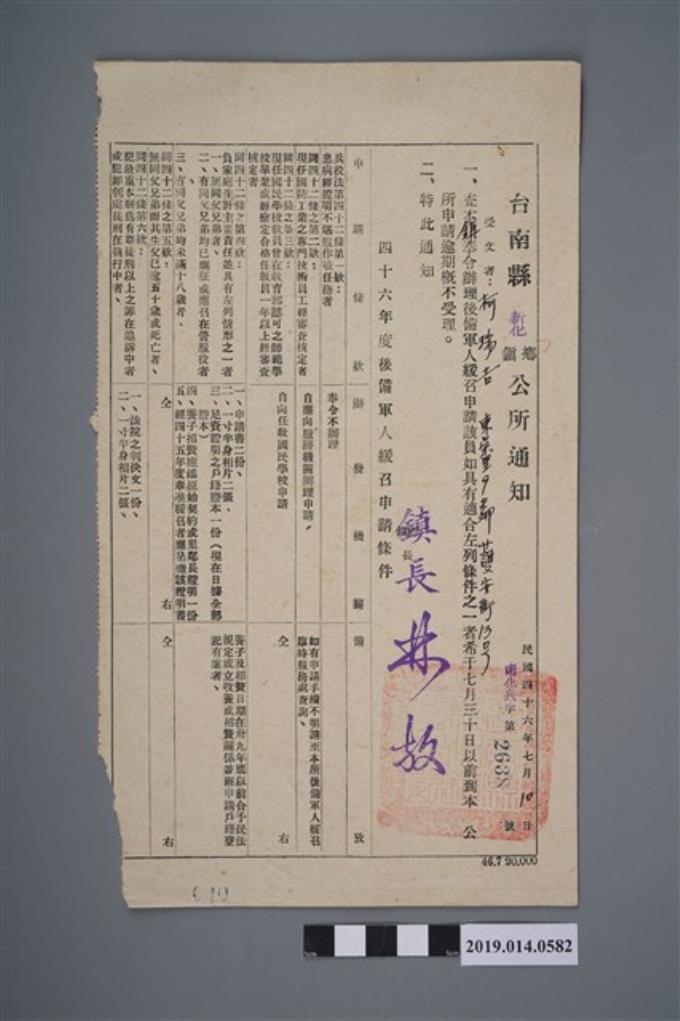 台南縣新化鄉鎮公所通知
民國四十六年七月10日
南化兵字第2638號
受文者：柯瑞吉 東榮里9鄰 護安街13号
一、查本鎮奉令辦理後備軍人緩召申請該員如具有適合左列條件之一者希于七月三十日以前到本公
所申請逾期概不受理。
二、特此通知
鎮長 林
四十六年度後備軍人緩召申請條件
申請條款 辦發機關 備致
兵役法第四十二條第一款：
患病經證明不堪服作戰任務者
奉令不辦理
同四十二條之第二款：
現任國防工業之專門技術員工經審查核定者
自應向服務機關辦理申請，
如有申請手續不明請至本所後備軍人緩召
臨時服務處查詢、
同四十二條之第三款：
現任國民學校教員曾在教育部認可之師範學
校畢業或經檢定合格任教員一年以上經審查
核定者
自向任教國民學校申請
仝右
同四十二條之第四款：
負家庭生計主要責任並具有左列情形之一者
一、無同父兄弟者、
二、有同父兄弟均已應征或應召在營服役者
、
三、有同父兄弟均未滿十八歲者、
一、申請書二份、
二、一寸半身相片二張、
三、足資證明之戶籍謄本一份（現在日據全部
謄本）
四、養子招贅應繳原始契約或里鄰長證明一份
五、經四十五年度奉准緩召者應呈繳該證明書
養子及招贅日期在卅九年底以前合乎民法
規定成立收養或招贅關係並經申請戶籍登
記有案者、
同四十二條之第五款：
無同父兄弟而其生父已逾五十歲或死亡者、
仝右
仝右
同四十二條之第六款：
犯最重本刑為有期徒刑以上之罪在追訴中者
或犯罪判處徒刑在執行中者、
一、法院之判決文一份、
二、一寸半身相片二張、
46.7 20,000
2019.014.0582